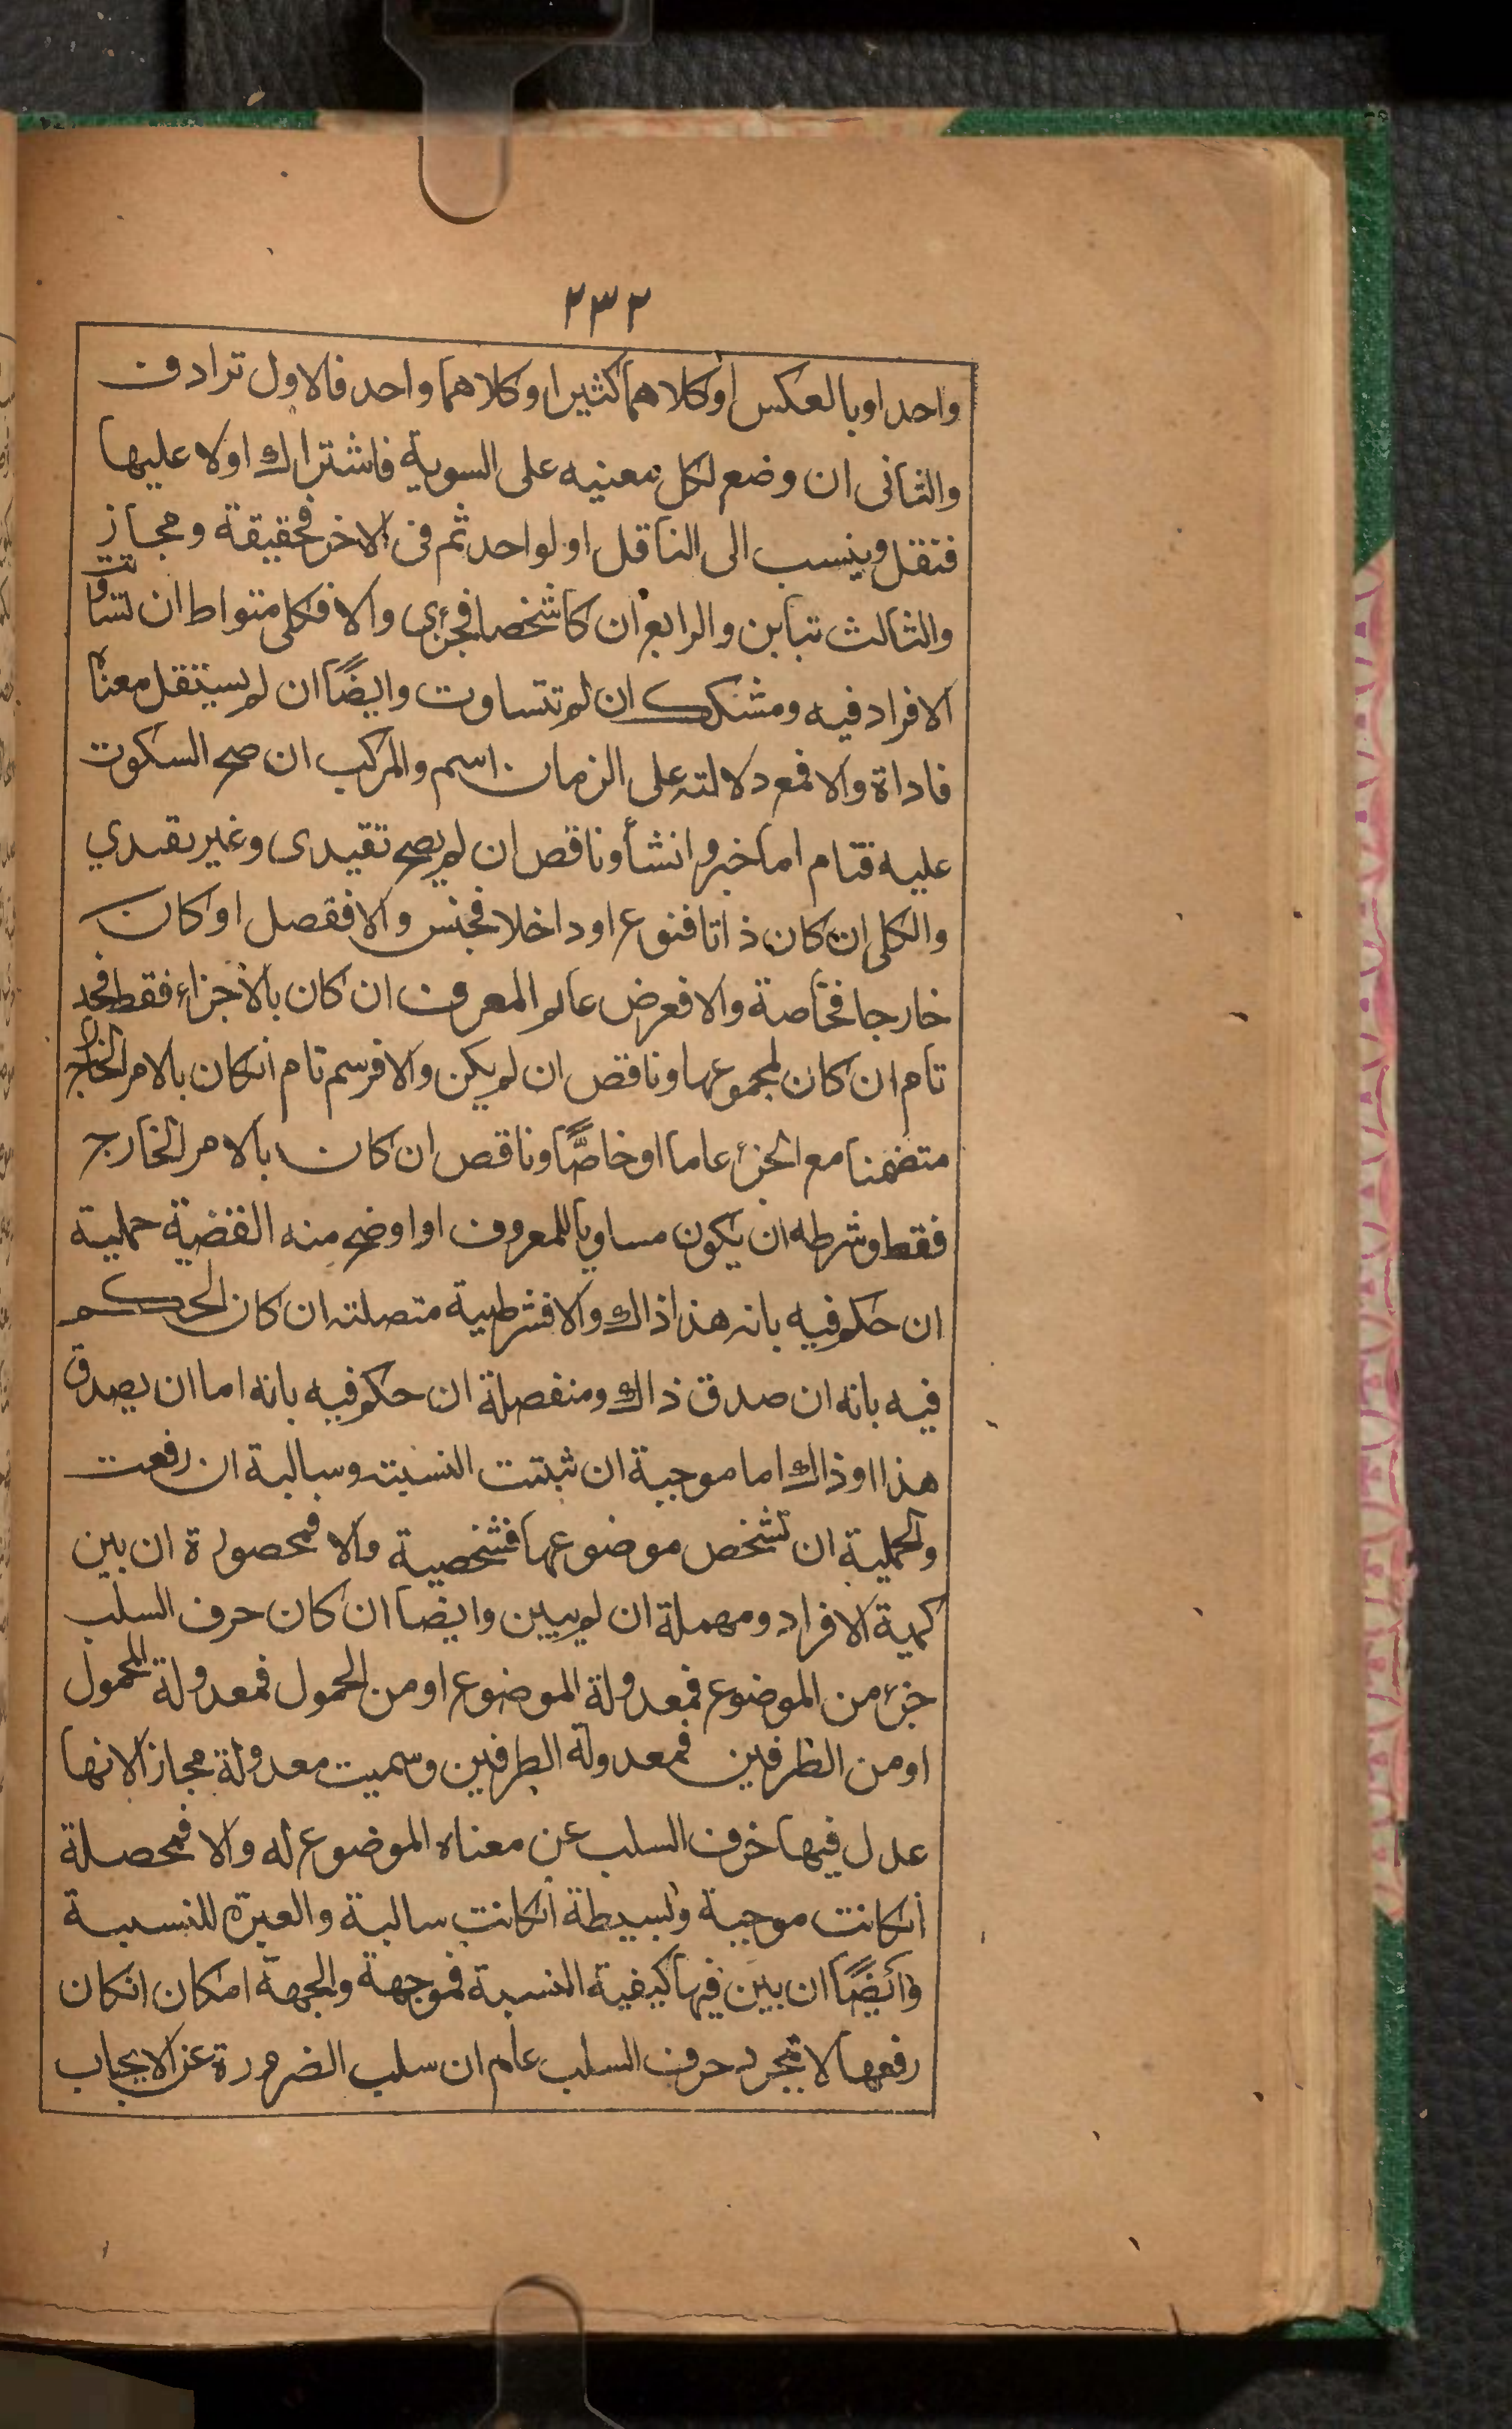 ٢٣٢
واحد او بالعكس او كلاهما كثيرا وكلاهما واحد فالاول ترادف
والثانى ان وضع لكل معنيه على السوية فاشتراك اولا عليها
فتقل وينسب الى الناقل او لواحد ثم فى الاخر فحقيقة ومجاز
والثالث تباين والرابع ان كا شخصا فجزى والا فكلى متواط ان تساوت
الافراد فيه ومشكك ان لم تتساوت وايضًا ان لم يستقل معناه
فاداة والا فمع دلالته على الزمان اسم والمركب ان صح السكوت
عليه فتام اما خبر وانشأ وناقص ان لم يصح تقيدى وغير تقيدي
والكلى ان كان ذاتا فنوع او داخلا فجنس والا ففصل او كان
خارجا فخاصة والا فعرض عام المعرف ان كان بالاجزاء فقط فحد
تام ان كان لمجموعها وناقص ان لم يكن والا فرسم تام انكان بالامر الخارج
متضمنا مع الجزء عاما او خاصًّا وناقص ان كان بالامر الخارج
فقط وشرطه ان يكون مساويا للمعروف او اوضح منه القضية حملية
ان حكم فيه بانه هذا ذاك والا فشرطيية متصلته ان كان الحكم
فيه بانه ان صدق ذاك ومنفصلة ان حكم فيه بانه اما ان يصدق
هذا او ذاك اما موجبة ان ثبتت النسبته وسالبة ان رفعت
والحملية ان تشخص موضوعها فشخصية والا فمحصورة ان بين
كمية الافراد ومهملة ان لم يبين وايضا ان كان حرف السلب
جزء من الموضوع فمعدولة الموضوع او من المحمول فمعدولة المحمول
او من الطرفين فمعدولة الطرفين وسميت معدولة مجازا لانها
عدل فيها خرف السلب عن معناه الموضوع له والا فمحصلة
انكانت موجبة وبسيطة انكانت سالبة والعبرة للنسبة
وائضًا ان بين فيها كيفية النسبة فموجهة والجهة امكان انكان
رفعها لا تجرد حرف السلب عام ان سلب الضرورة عن الايجاب